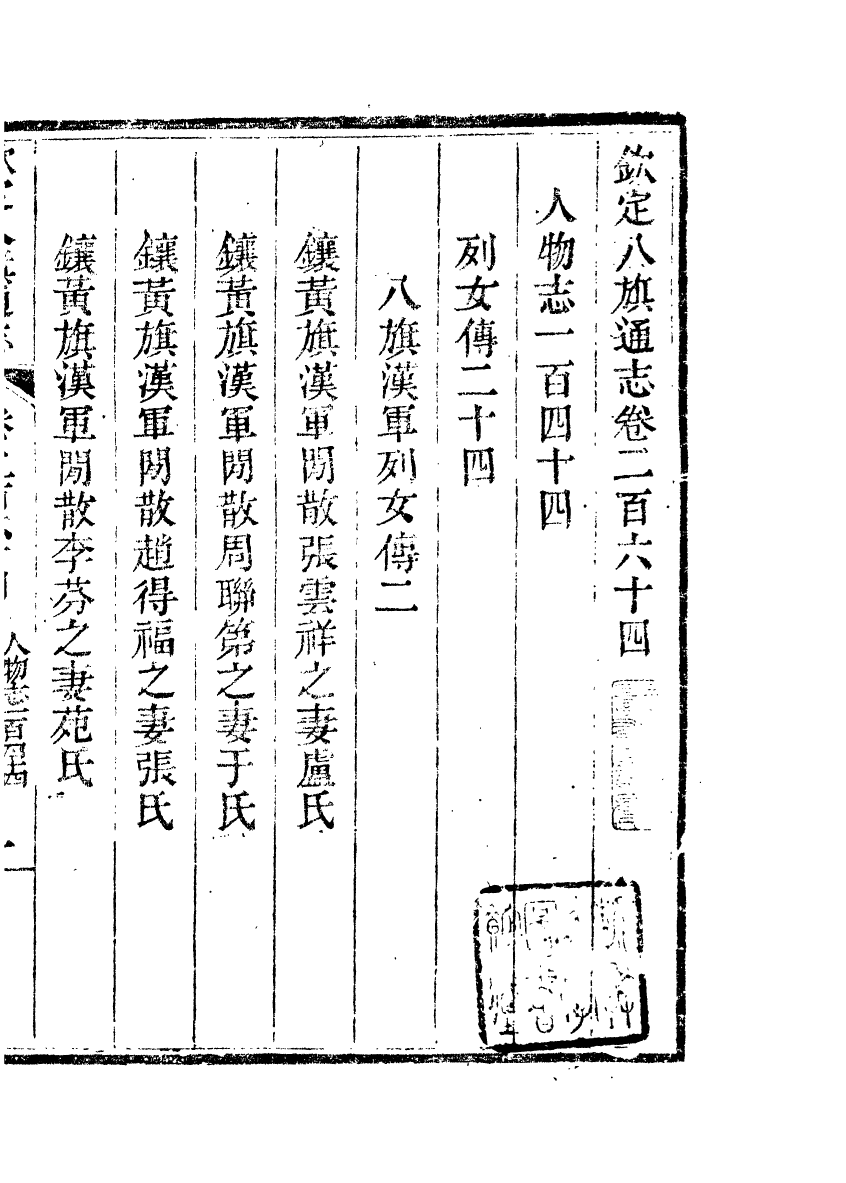 欽定八旗通志卷二百六十四
人物志一百四十四
列女傳二十四
八旗漢軍列女傳二
鑲黃旗漢軍閒散張雲祥之妻盧氏
鑲黃旗漢軍閒散周聯第之妻于氏
鑲黃旗漢軍閒散趙得福之妻張氏
鑲黃旗漢軍閒散李芬之妻苑氏
人物志一百四十四